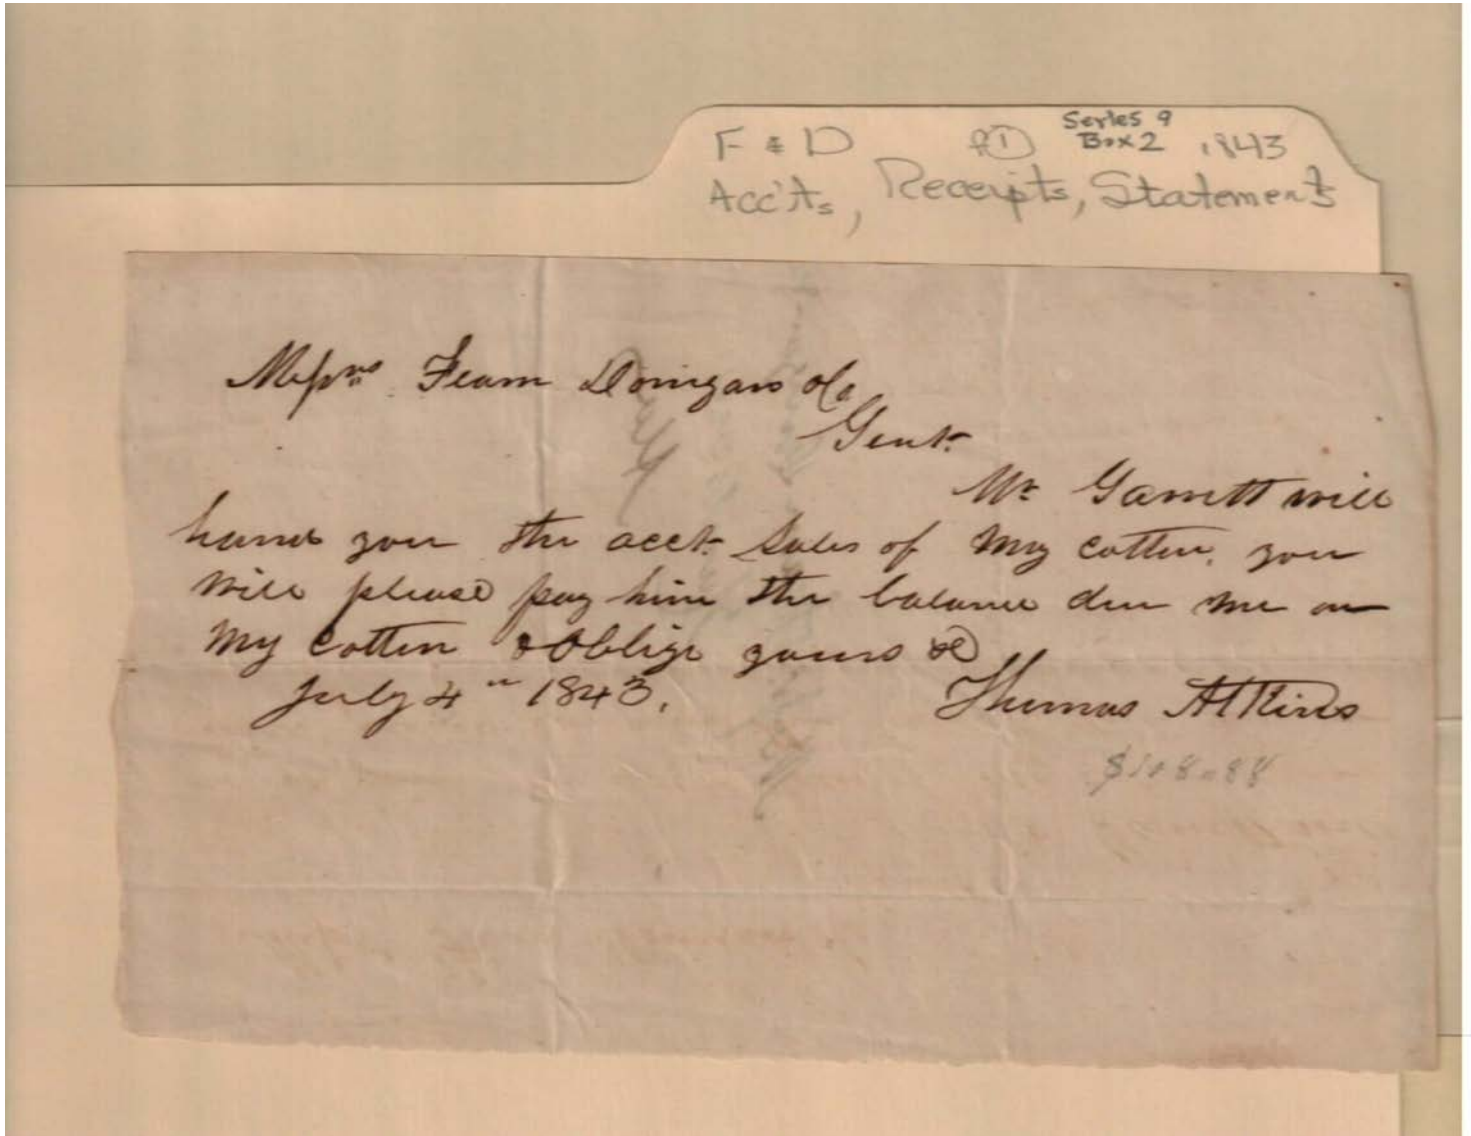 F & D
Series 9
Box 2
1843
Acc'ts, Receipts, Statements
Messrs Fearn Donigans & Co
Gent.
Mr Garrett will
hand you the acct Sales of my cotten. you
will please pay him the balance due me on
my cotten & Oblige yours &c
July 4th 1843.
Thomas Atkins